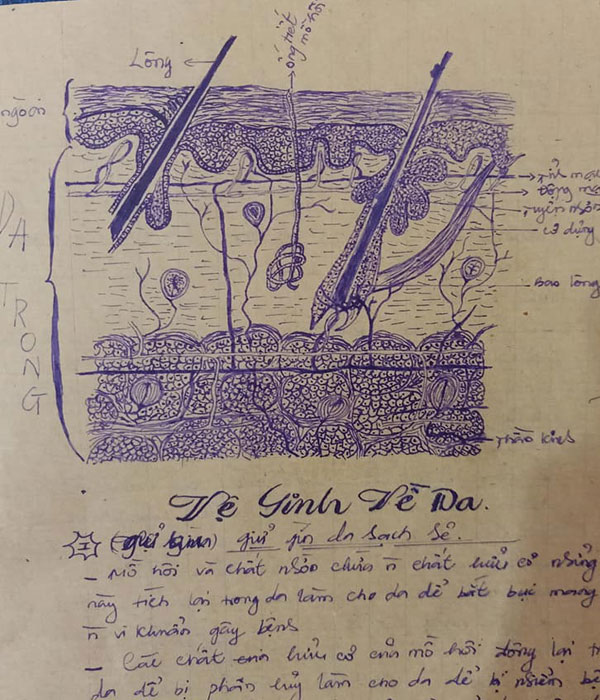 Lông
ống tiết
mồ hôi
ngoài
DA
TRONG
Tĩnh mạ
Động mạ
tuyến nhờn
cơ dựng
Bao lông
thần kinh
Vệ Sinh Về Da.
I giữ gìn da sạch sẽ.
- Mồ hôi và chất nhờn chứa n chất hữu cơ những
này tích lại trong da làm cho da dễ bắt bụi mang
n vi khuẩn gây bệnh
- Các chất hữu cơ của mồ hôi đọng lại tr
da dễ bị phân hủy làm cho da dễ bị nhiễm bê